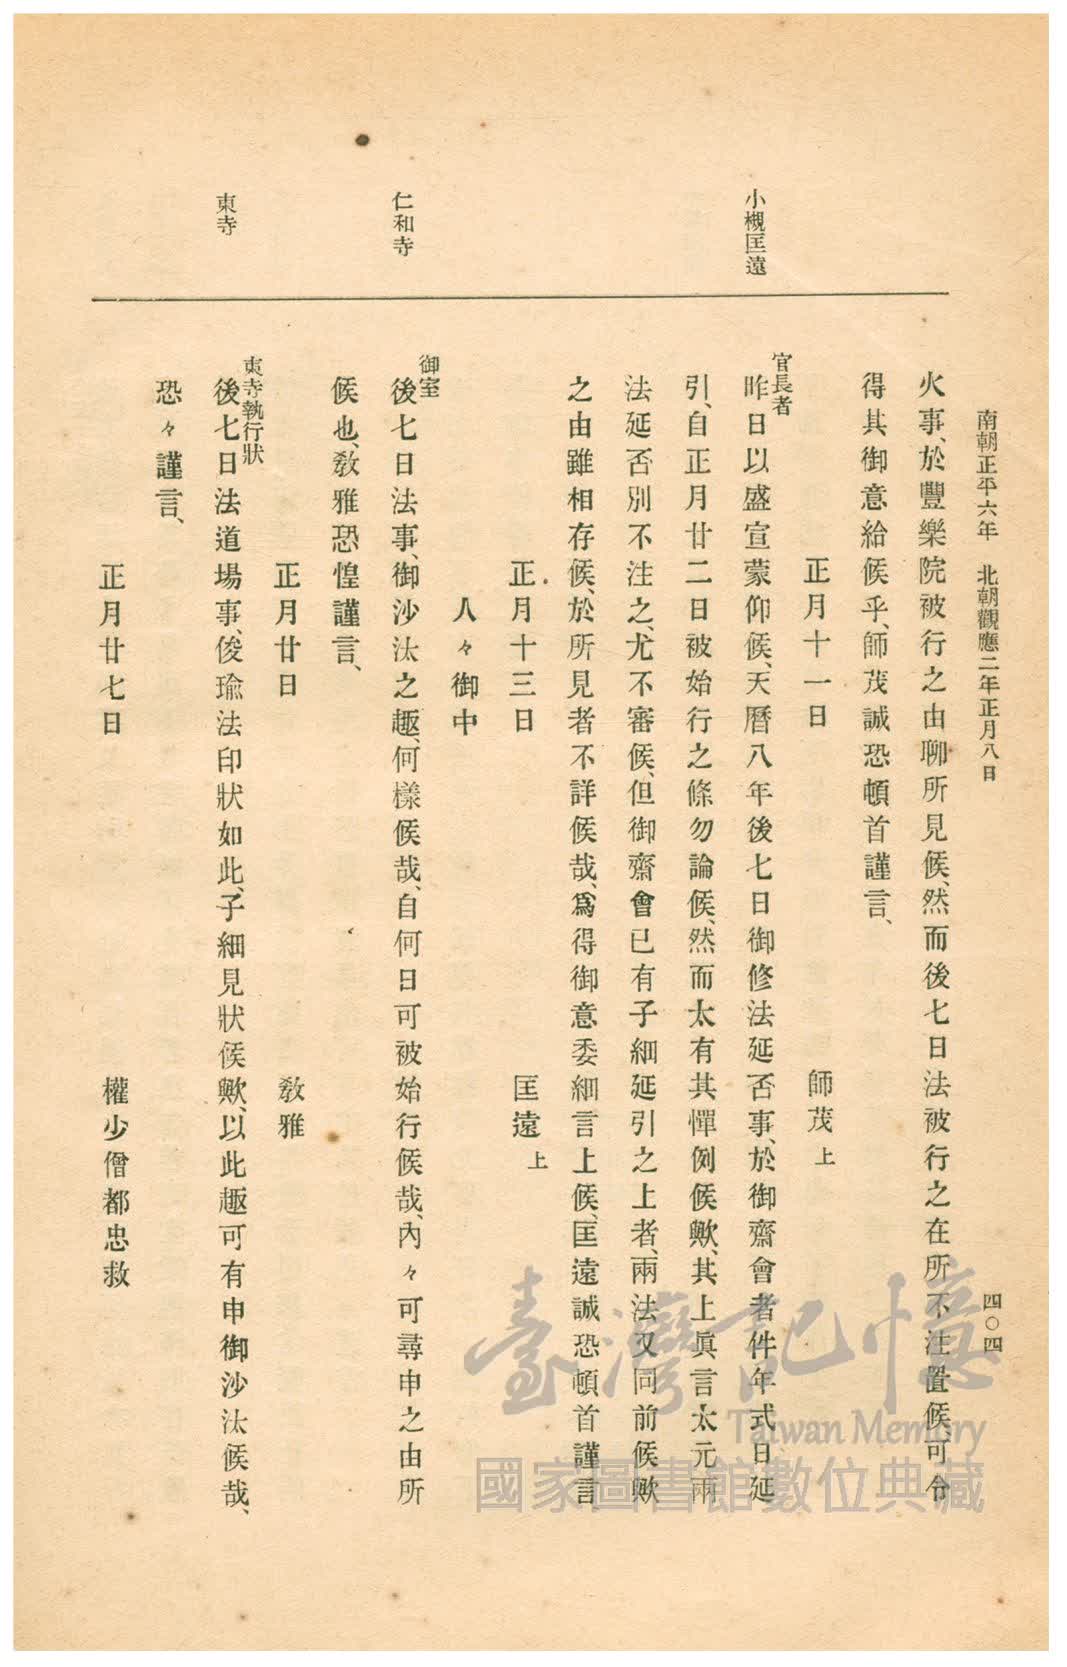 南朝正平六年 北朝觀應二年正月八日
四〇四
火事、於豐樂院被行之由聊所見候、然而後七日法被行之在所不注置候可令
得其御意給候乎、師茂誠恐頓首謹言、
正月十一日 師茂上
小槻匡遠
官長者
昨日以盛宣蒙仰候、天曆八年後七日御修法延否事、於御齋會者件年式日延
引、自正月廿二日被始行之條勿論候、然而太有其憚例候歟、其上眞言太元兩
法延否別不注之、尤不審候、但御齋會已有子細延引之上者、兩法又同前候歟
之由雖相存候、於所見者不詳候哉、爲得御意委細言上候、匡遠誠恐頓首謹言
正月十三日 匡遠上
人々御中
仁和寺
御室
後七日法事、御沙汰之趣、何樣候哉、自何日可被始行候哉、內々可尋申之由所
候也、敎雅恐惶謹言、
正月廿日 敎雅
東寺
東寺執行狀
後七日法道場事、俊瑜法印狀如此、子細見狀候歟、以此趣可有申御沙汰候哉、
恐々謹言、
正月廿七日 權少僧都忠救
臺灣記憶
Taiwan Memory
國家圖書館數位典藏